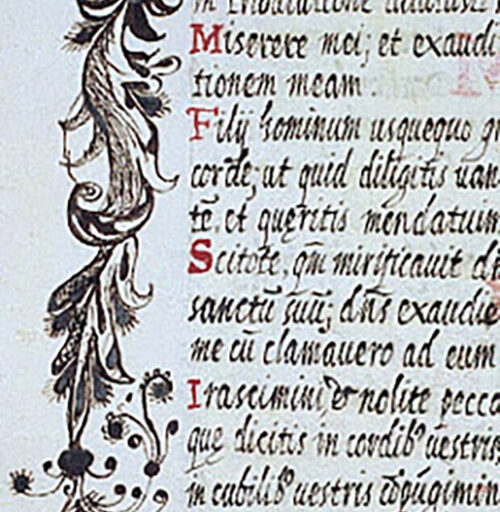 in tribulatione
Miserere mei; et exaudi
tionem meam.
Filij hominum usquequo gr
corde, ut quid diligitis uan
tē, et queritis mendatium
Scitote, qm̄ mirificauit dn̄
sanctū suū; dn̄s exaudie
me cū clamauero ad eum
Irascimini, & nolite pecca
que dicitis in cordib' uestris
in cubilib' uestris cōpūgimin